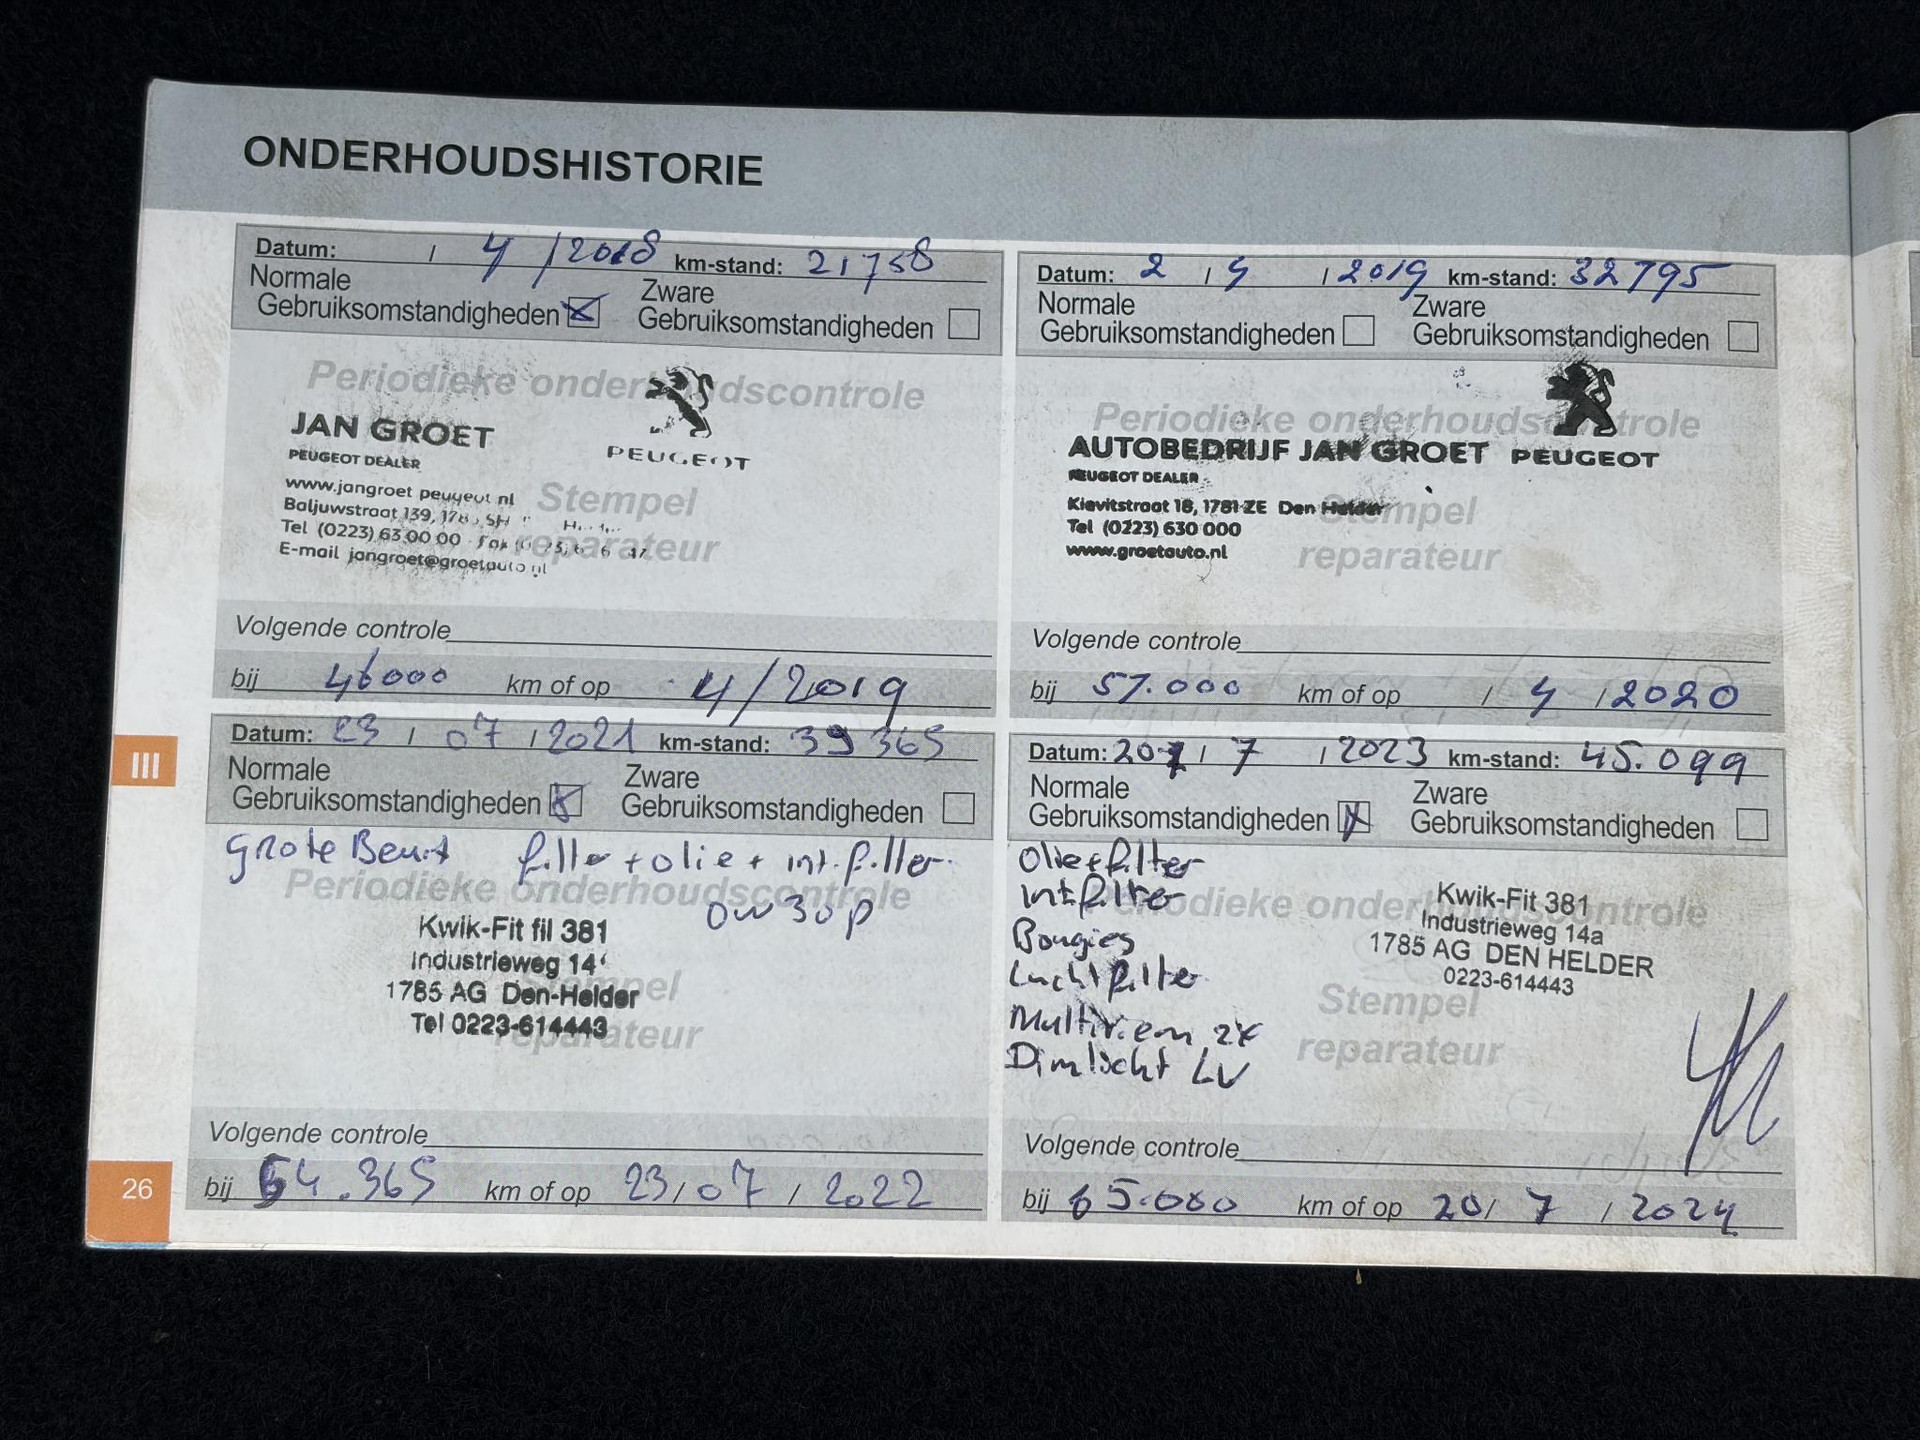 ONDERHOUDSHISTORIE
Datum: / 4 / 2018 km-stand: 21758
Normale Zware
Gebruiksomstandigheden Gebruiksomstandigheden
Periodieke onderhoudscontrole
JAN GROET
PEUGEOT DEALER
PEUGEOT
www.jangroet peugeot nl
Baljuwstraat 139,
Tel (0223) 63 00 00
E-mail jangroet@groetauto.nl
Stempel
reparateur
Volgende controle
bij 46000 km of op 4/2019
Datum: 2 / 4 / 2019 km-stand: 32795
Normale Zware
Gebruiksomstandigheden Gebruiksomstandigheden
Periodieke onderhoudscontrole
AUTOBEDRIJF JAN GROET PEUGEOT
PEUGEOT DEALER
Kievitstraat 18, 1781 ZE Den Helder
Tel (0223) 630 000
www.groetauto.nl
Stempel
reparateur
Volgende controle
bij 57.000 km of op / 4 / 2020
Datum: 23 / 07 / 2021 km-stand: 39365
Normale Zware
Gebruiksomstandigheden Gebruiksomstandigheden
grote Beurt filter + olie + int.filter
0W30p
Periodieke onderhoudscontrole
Kwik-Fit fil 381
Industrieweg 14
1785 AG Den-Helder
Tel 0223-614443
Stempel
reparateur
Volgende controle
bij 54.365 km of op 23/07/2022
Datum: 20 / 7 / 2023 km-stand: 45.099
Normale Zware
Gebruiksomstandigheden Gebruiksomstandigheden
Olie+filter
intfilter
Bougies
Luchtfilter
Multiriem 2x
Dimlicht LV
Periodieke onderhoudscontrole
Kwik-Fit 381
Industrieweg 14a
1785 AG DEN HELDER
0223-614443
Stempel
reparateur
Volgende controle
bij 65.000 km of op 20/ 7 / 2024
III
26